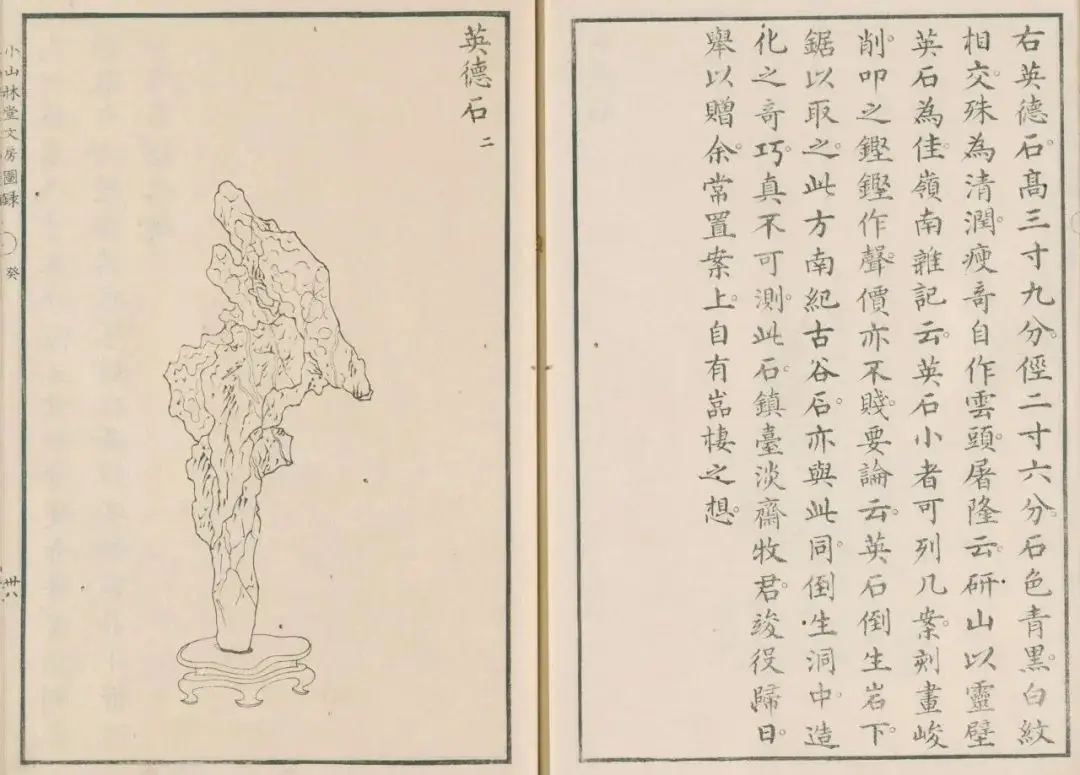 右英德石高三寸九分徑二寸六分石色青黑白紋
相交殊為清潤瘦奇自作雲頭屠隆云研山以靈壁
英石為佳嶺南雜記云英石小者可列几案刻畫峻
削叩之鏗鏗作聲價亦不賤要論云英石倒生岩下
鋸以取之此方南紀古谷石亦與此同倒生洞中造
化之奇巧真不可測此石鎮臺淡齋牧君竣役歸日
舉以贈余常置案上自有嵓棲之想
英德石二
小山林堂文房圖錄
癸
卅八